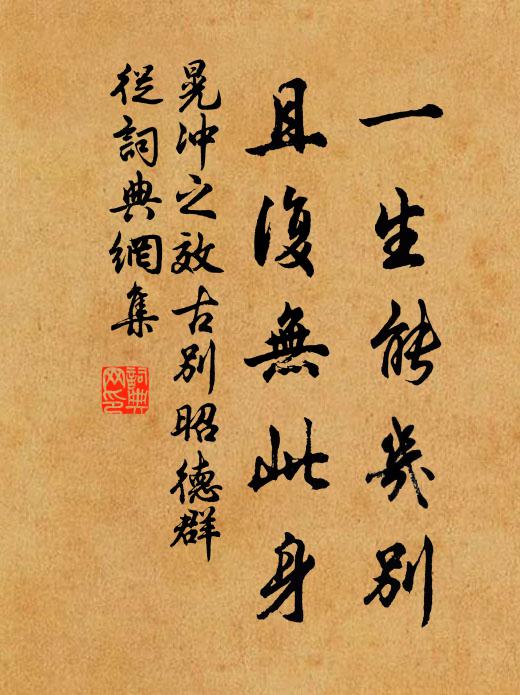 一生能几別
且復無此身
晁沖之效古別昭德群
從詞典網集
詞典网印